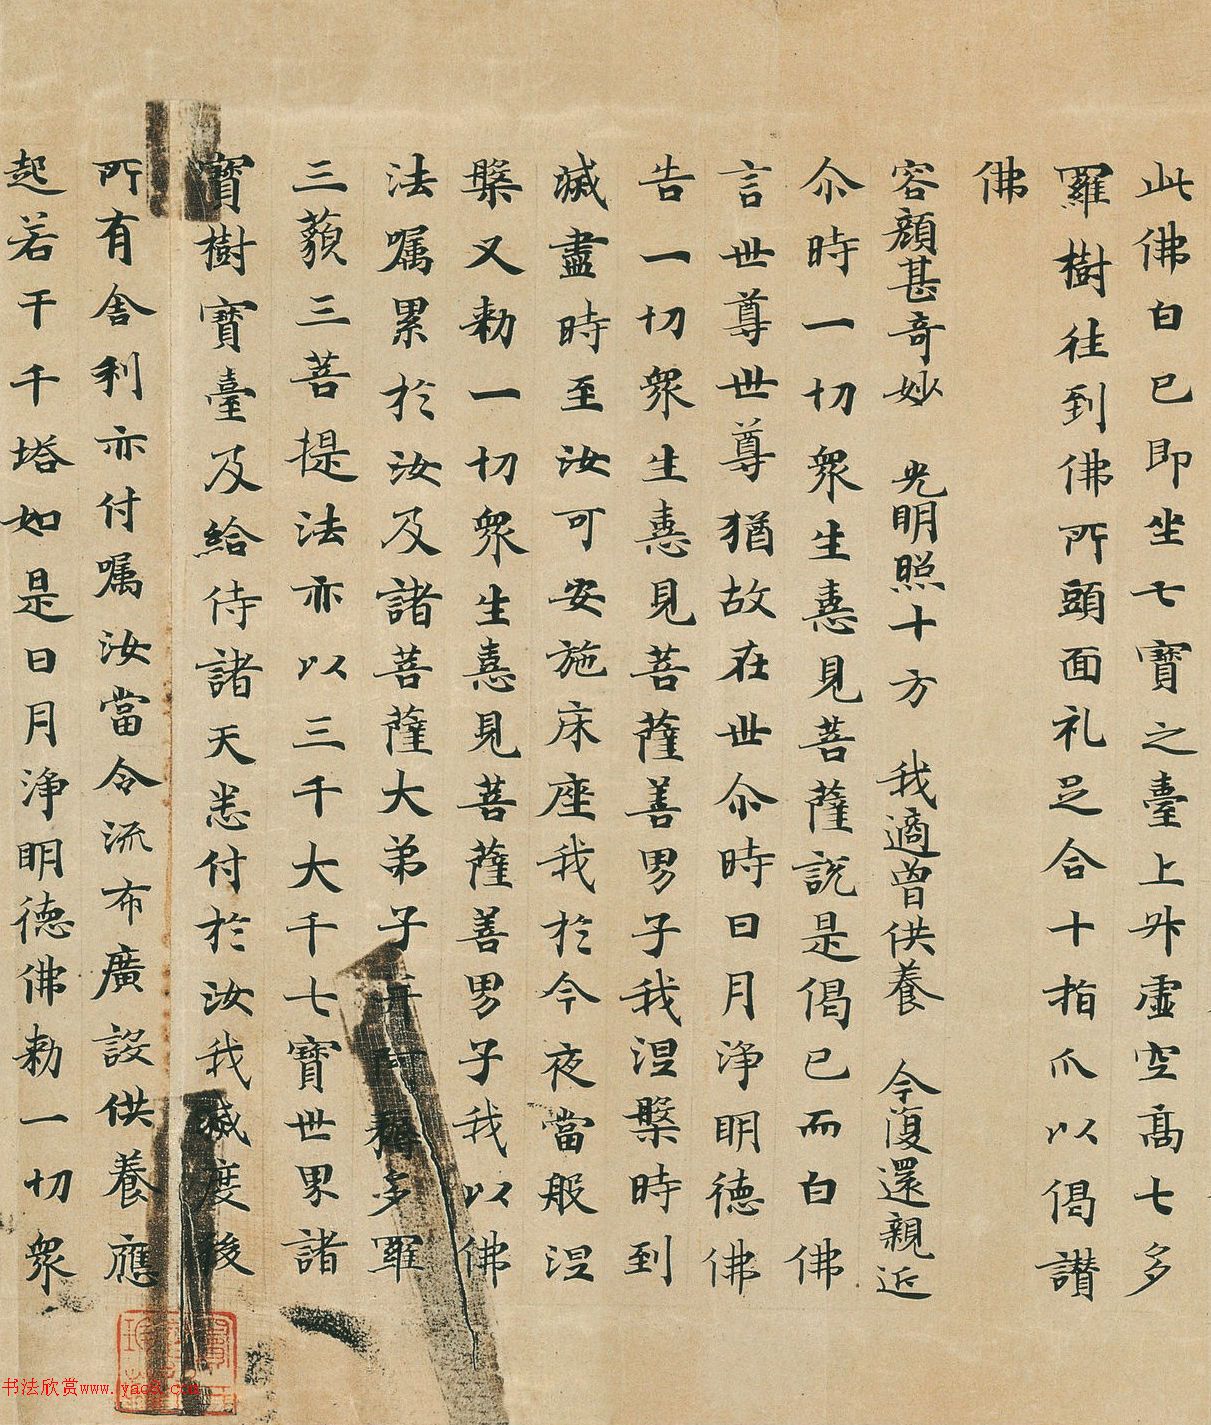 此佛白已即坐七寶之臺上昇虛空高七多
羅樹往到佛所頭面礼足合十指爪以偈讃
佛
容顔甚奇妙 光明照十方 我適曾供養 今復還親近
尒時一切衆生憙見菩薩說是偈已而白佛
言世尊世尊猶故在世尒時日月淨明德佛
告一切衆生憙見菩薩善男子我涅槃時到
滅盡時至汝可安施床座我於今夜當般涅
槃又勑一切衆生憙見菩薩善男子我以佛
法囑累於汝及諸菩薩大弟子并阿耨多羅
三藐三菩提法亦以三千大千七寶世界諸
寶樹寶臺及給侍諸天悉付於汝我滅度後
所有舎利亦付囑汝當令流布廣設供養應
起若干千塔如是日月淨明德佛勑一切衆
书法欣赏www.yac8.com